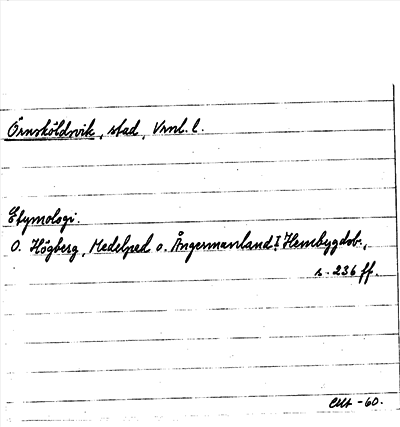 Örnsköldsvik, stad, Vnrl. l.
Etymologi.
O. Högberg, Medelped o. Ångermanland I, Hembygdsb.,
s. 236 ff.
-60.